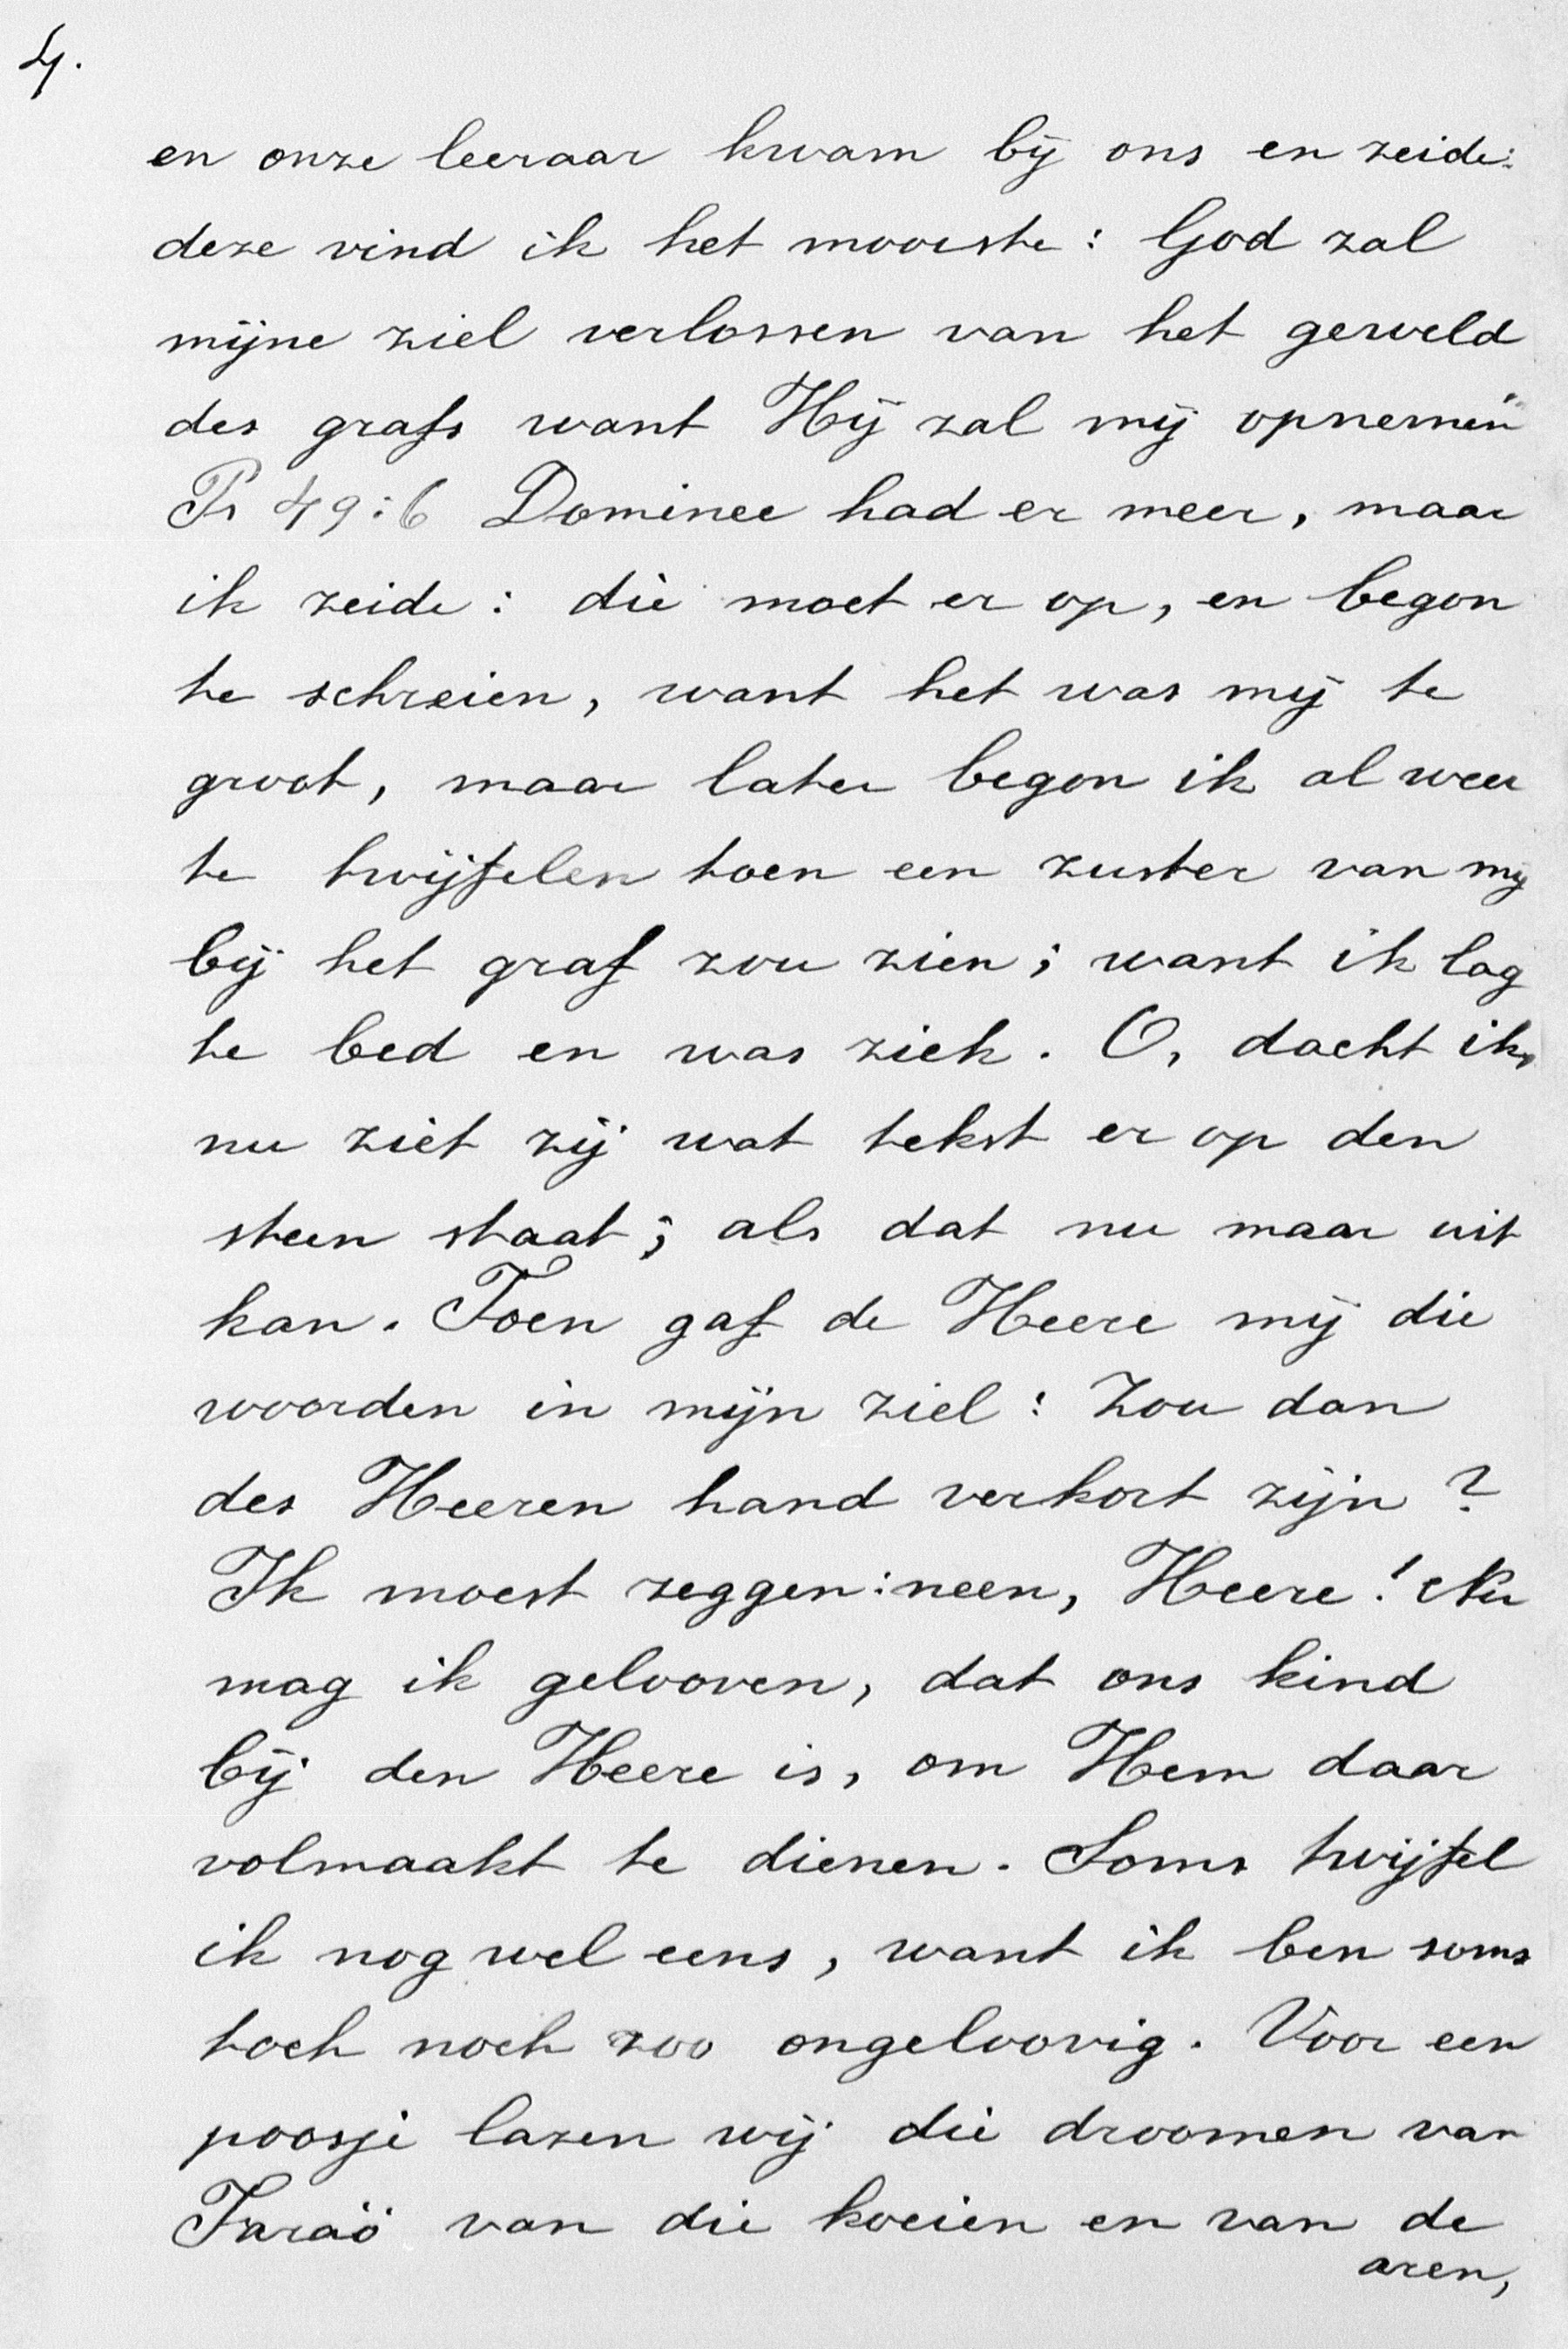 4.
en onze leeraar kwam bij ons en zeide:
deze vind ik het mooiste: God zal
mijne ziel verlossen van het geweld
des grafs want Hij zal mij opnemen"
Ps 49:6 Dominee had er meer, maar
ik zeide: die moet er op, en begon
te schreien, want het was mij te
groot, maar later begon ik al weer
te twijfelen toen een zuster van mij
bij het graf zou zien; want ik lag
te bed en was ziek. O, dacht ik,
nu ziet zij wat tekst er op den
steen staat; als dat nu maar uit
kan. Toen gaf de Heere mij die
woorden in mijn ziel: Zou dan
des Heeren hand verkort zijn?
Ik moest zeggen: neen, Heere! Nu
mag ik gelooven, dat ons kind
bij den Heere is, om Hem daar
volmaakt te dienen. Soms twijfel
ik nog wel eens, want ik ben soms
toch noch zoo ongeloovig. Voor een
poosje lazen wij die droomen van
Faraö van die koeien en van de
aren,